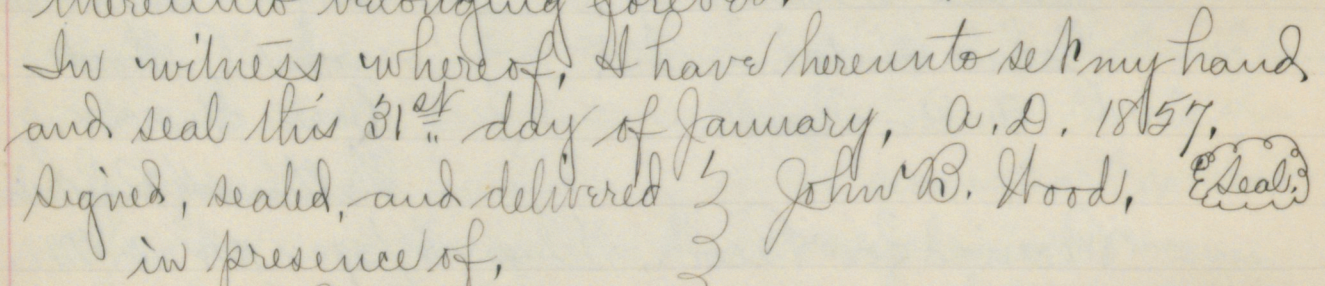 thereunto belonging forever.
In witness whereof, I have hereunto set my hand
and seal this 31st day of January, A.D. 1857.
Signed, sealed, and delivered } John B. Wood, Seal.
in presence of,